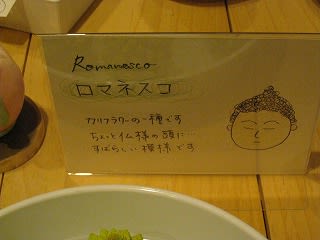 Romanesco
ロマネスコ
カリフラワーの一種です
ちょっと仏様の頭に…
すばらしい模様です